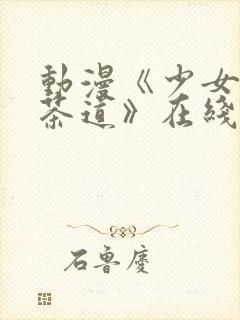 動漫《少女
茶道》在綫
石鲁慶